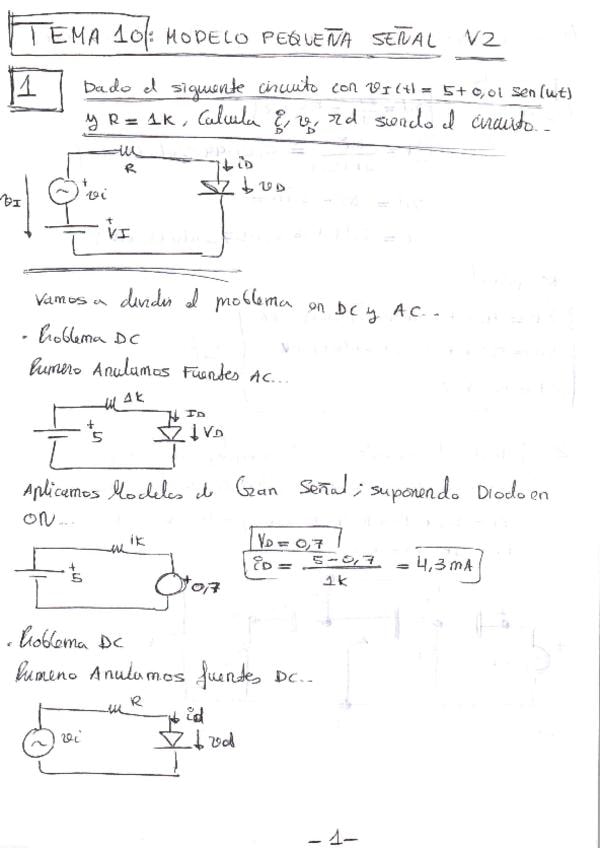 TEMA 10: MODELO PEQUEÑA SEÑAL V2
1 Dado el siguiente circuito con vI(t) = 5 + 0,01 sen(wt)
y R = 1K, Calcula iD, vD, rd siendo el circuito...
R
iD
vD
vi
vI
VI
Vamos a dividir el problema en DC y AC...
· Problema DC
Primero Anulamos Fuentes AC...
1K
ID
5
VD
Aplicamos Modelos de Gran Señal; suponiendo Diodo en
ON...
1K
5
0,7
VD = 0,7
iD = 5-0,7 / 1K = 4,3 mA
· Problema DC
Primero Anulamos fuentes DC...
R
id
vi
vd
-1-